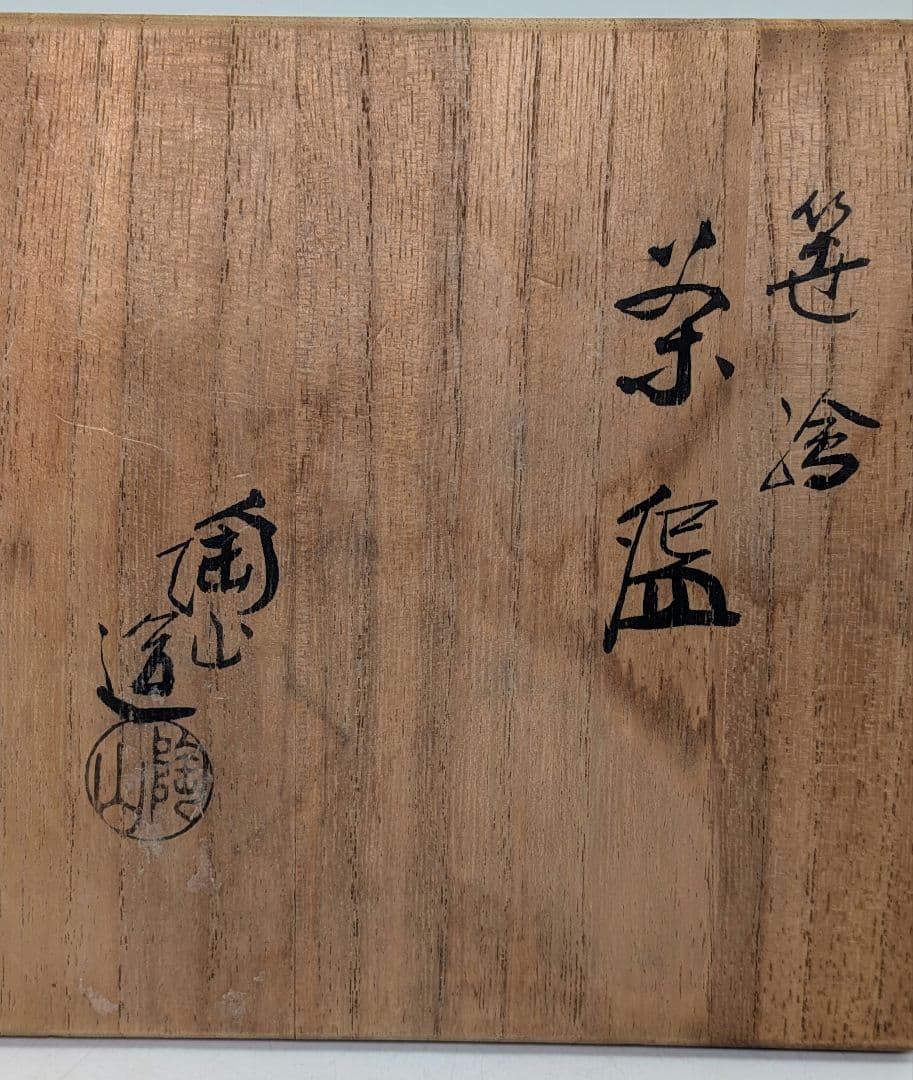 笹絵
茶盌
陶山造
陶山